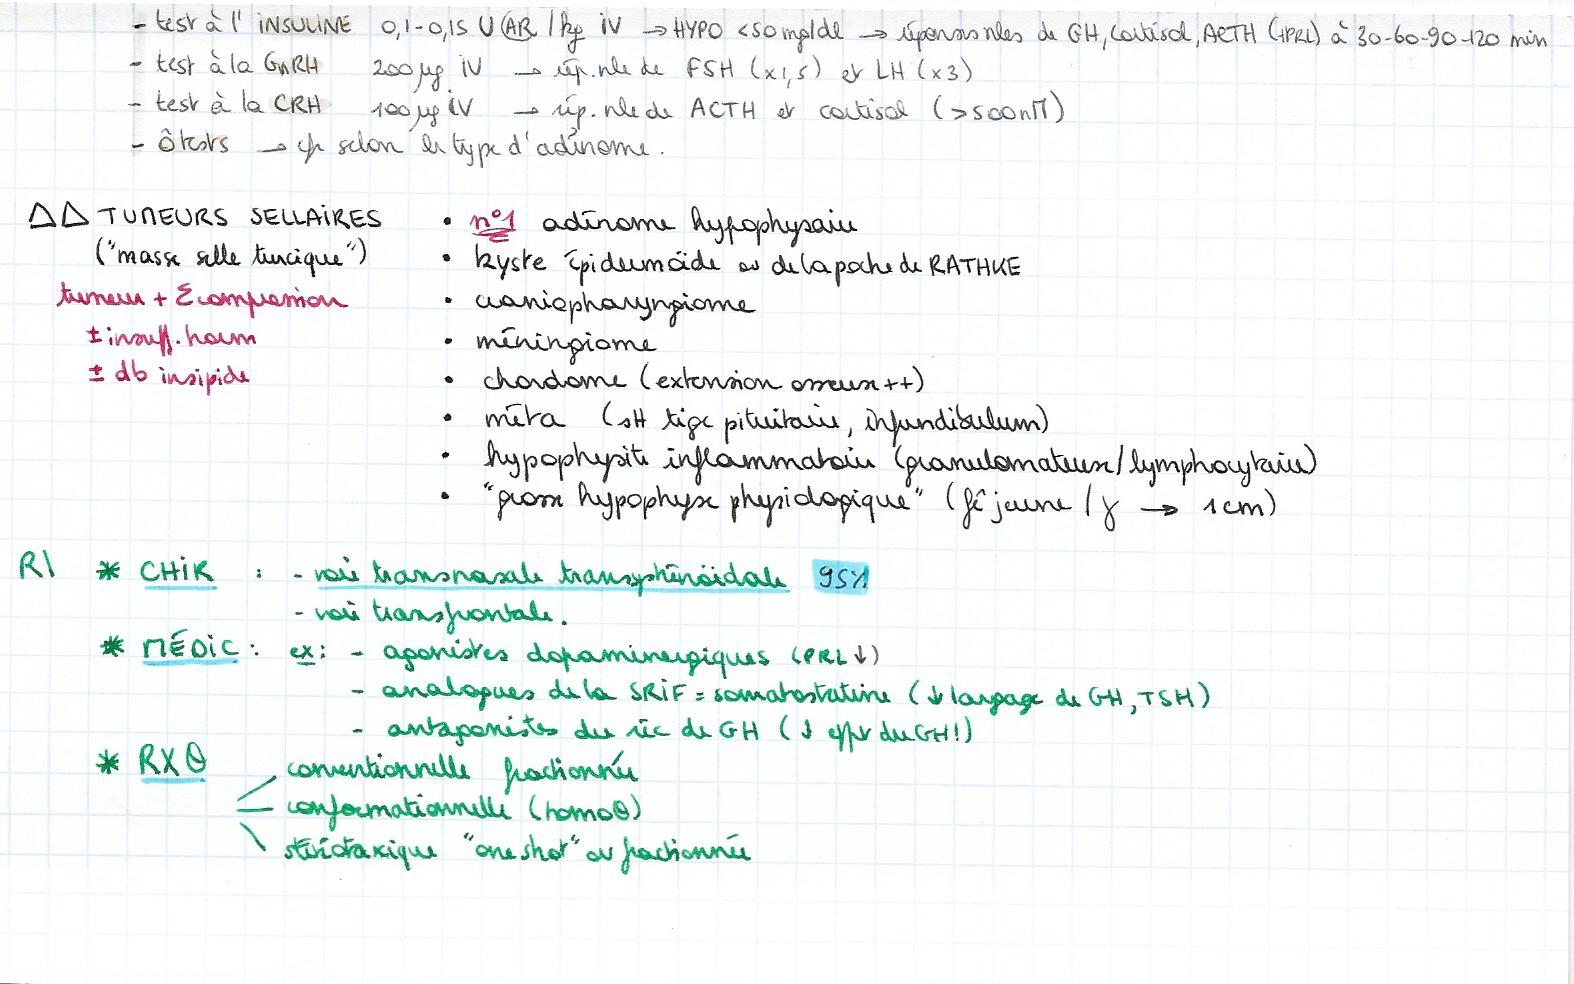 - test à l'INSULINE 0,1-0,15 U (AR) /kg iV → HYPO <50mg/dl → réponses nles de GH, Cortisol, ACTH (+PRL) à 30-60-90-120 min
- test à la GnRH 200µg iV → rép. nle de FSH (x1,5) et LH (x3)
- test à la CRH 100µg iV → rép. nle de ACTH et cortisol (>500nM)
- ôtests → selon le type d'adénome.
ΔΔ TUMEURS SELLAIRES
("masse selle turcique")
tumeur + Σcompression
± insuff. horm
± db insipide
• n°1 adénome hypophysaire
• kyste épidermoïde ou de la poche de RATHKE
• craniopharyngiome
• méningiome
• chordome (extension osseux ++)
• méta (st tige pituitaire, infundibulum)
• hypophysite inflammatoire (granulomateux/lymphocytaire)
• "grosse hypophyse physiologique" (fê jeune / γ → 1cm)
R/ * CHIR : - voie transnasale transsphénoïdale 95%
- voie transfrontale.
* MÉDIC : ex: - agonistes dopaminergiques (PRL↓)
- analogues de la SRIF = somatostatine (↓ largage de GH, TSH)
- antagonistes du réc de GH (↓ effet du GH!)
* RXθ
conventionnelle fractionnée
conformationnelle (tomoθ)
stéréotaxique "one shot" ou fractionnée